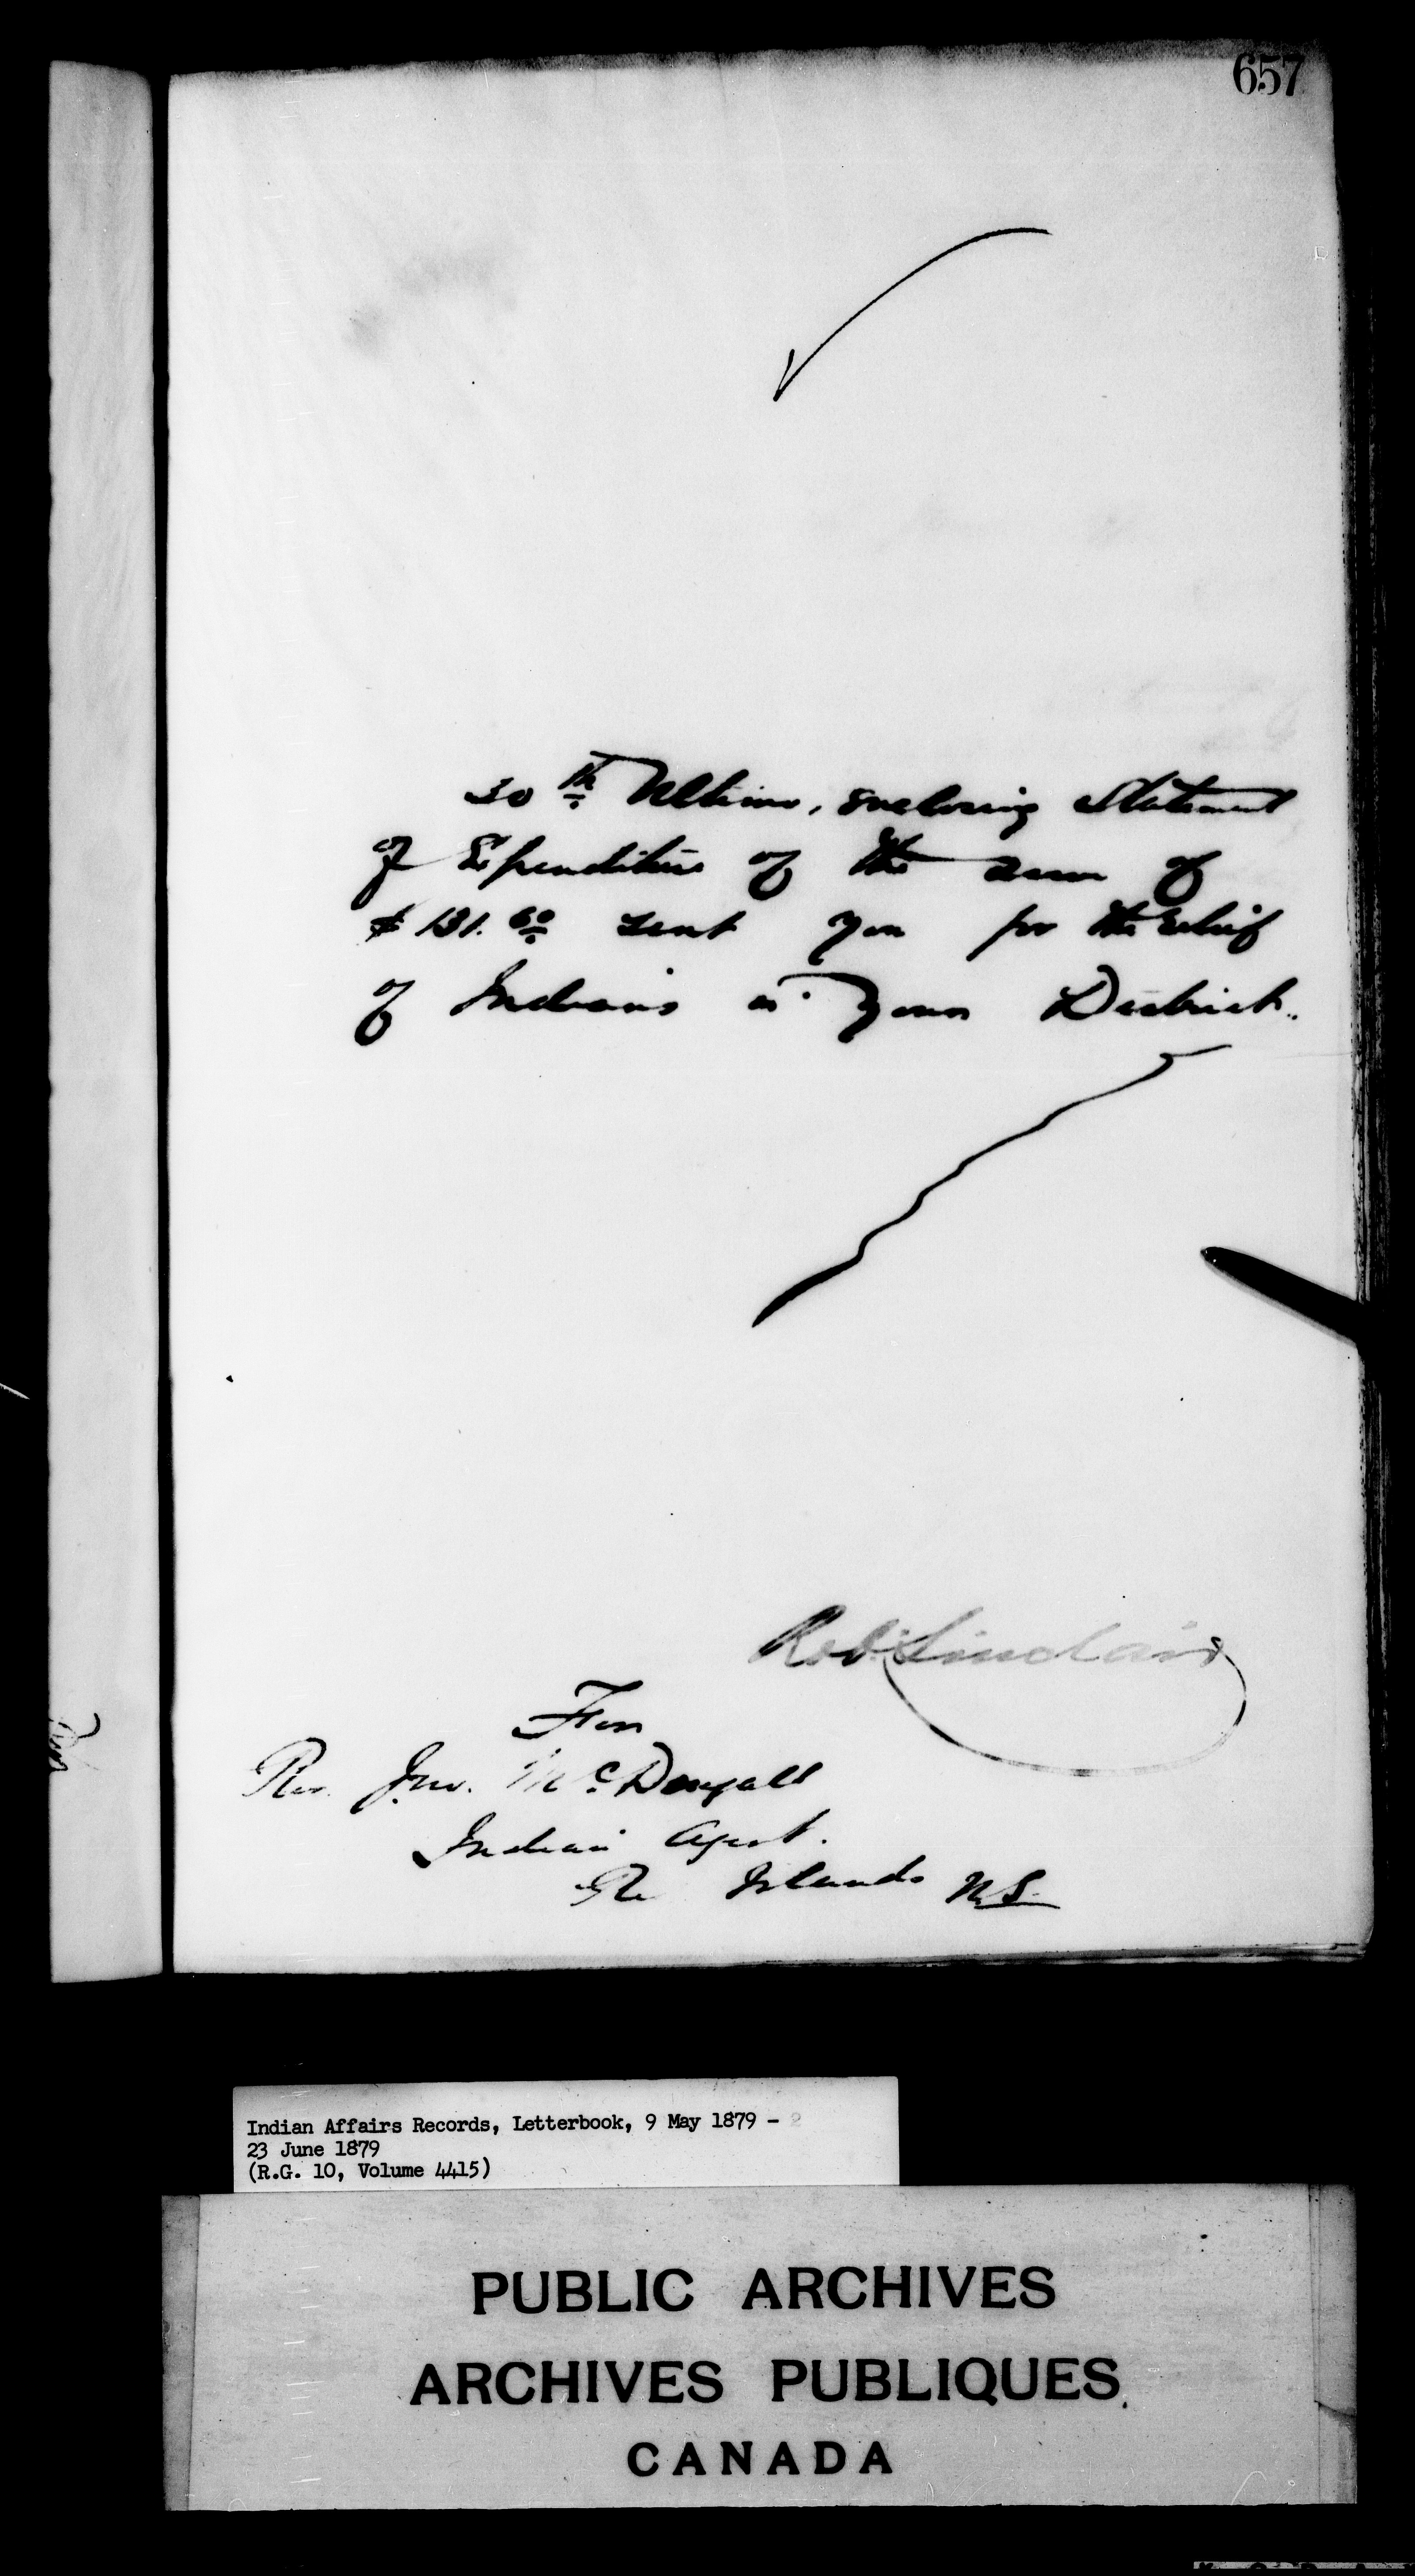 657
30th Ultimo, enclosing Statement
of Expenditure of the sum of
$131.60 sent you for the relief
of Indians in your District.
Robt Sinclair
For
Rev. Jno. McDougall
Indian Agent.
Islands N.S.
Indian Affairs Records, Letterbook, 9 May 1879 -
23 June 1879
(R.G. 10, Volume 4415)
PUBLIC ARCHIVES
ARCHIVES PUBLIQUES
CANADA